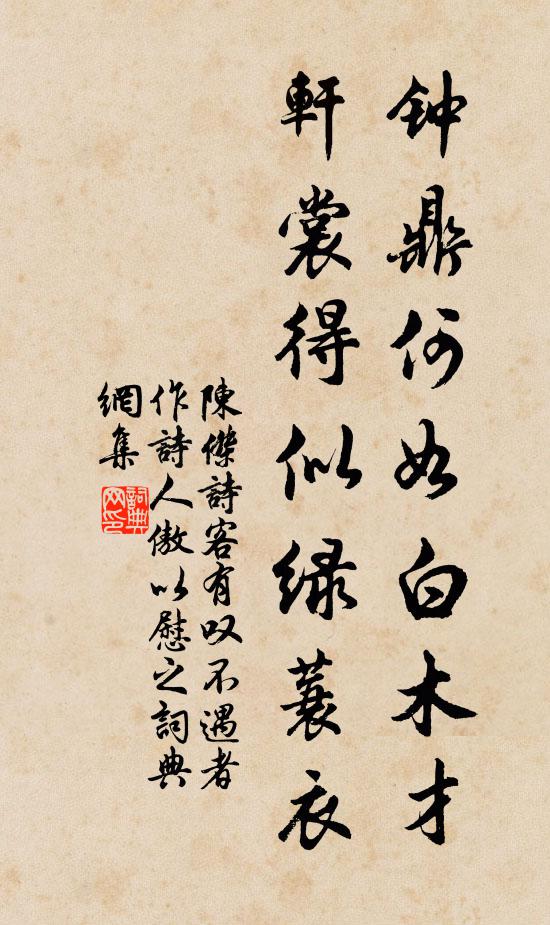 钟鼎何如白木才
軒裳得似緑蓑衣
陳傑詩客有叹不遇者
作詩人傲以慰之詞典
網集
詞典網印